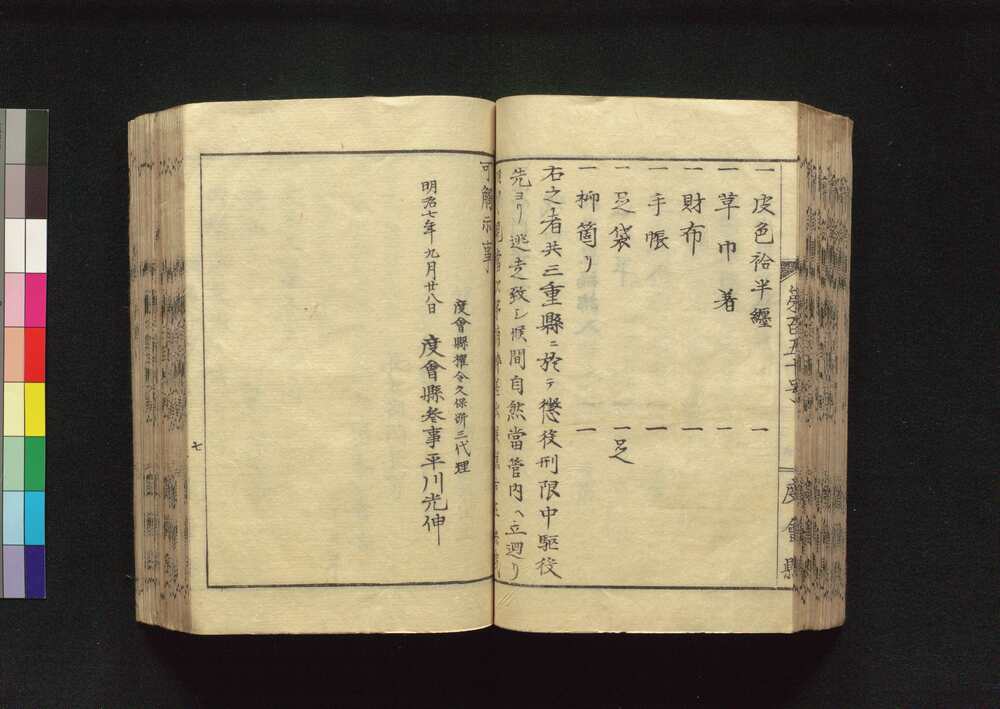 第百五十号
度會縣
一 皮色袷半纏 一
一 草巾着 一
一 財布 一
一 手帳 一
一 足袋 一足
一 柳箇リ 一
右之者共三重縣ニ於テ懲役刑限中駆役
先ヨリ逃走致シ候間自然當管内ヘ立廻リ
可觧示事
度會縣權令久保断三代理
明治七年九月廿八日 度會縣参事平川光伸
七